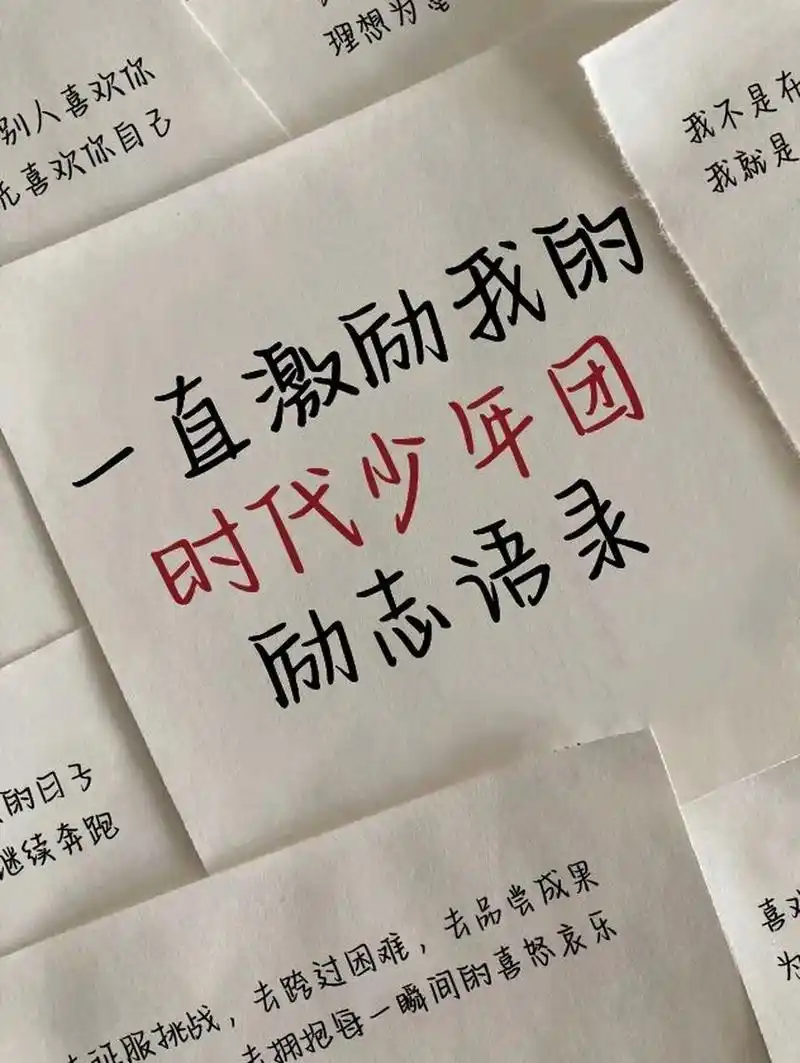 理想为
别人喜欢你
先喜欢你自己
我不是在
我就是
一直激励我的
时代少年团
励志语录
的日子
继续奔跑
去征服挑战，去跨过困难，去品尝成果
去拥抱每一瞬间的喜怒哀乐
喜欢
为